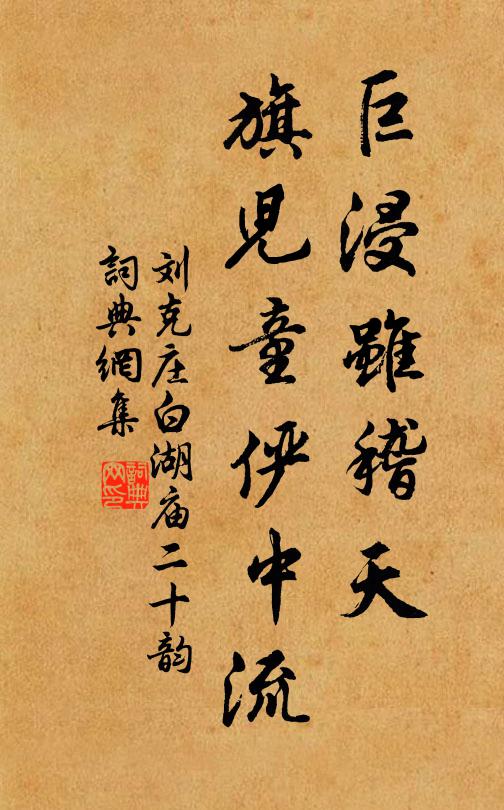 巨浸雖稽天
旗兒童俨中流
刘克庄白湖庙二十韵
詞典網集
詞典網印